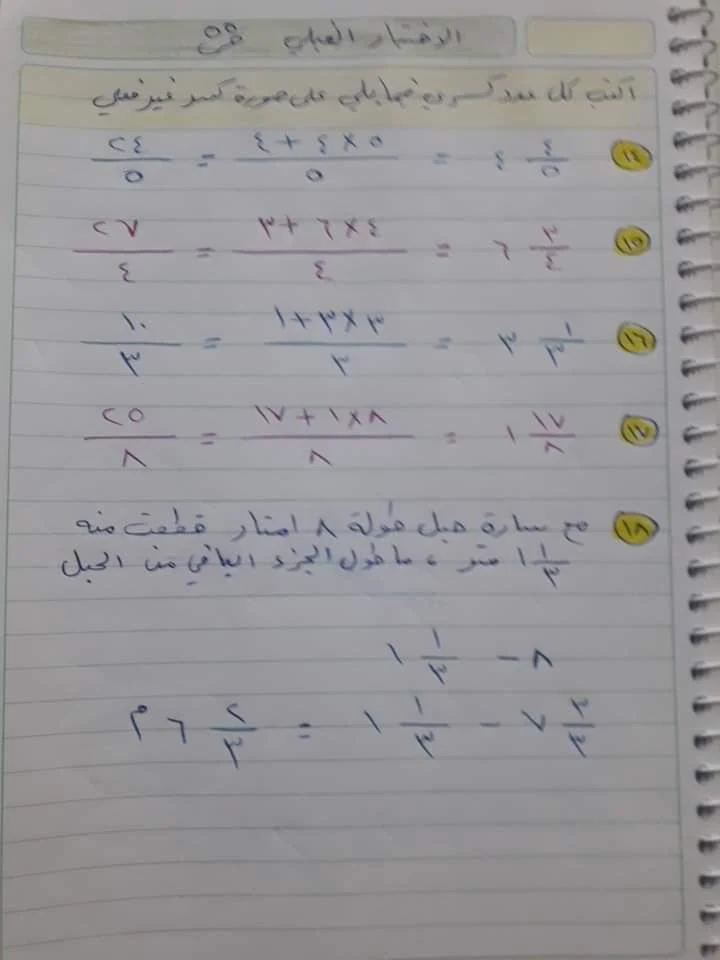 الاختبار القبلي ص٥٥
اكتب كل عدد كسري فيما يلي على صورة كسر غير فعلي
١٤ ٤ ٤/٥ = (٥×٤+٤)/٥ = ٢٤/٥
١٥ ٦ ٣/٤ = (٤×٦+٣)/٤ = ٢٧/٤
١٦ ٣ ١/٣ = (٣×٣+١)/٣ = ١٠/٣
١٧ ١ ١٧/٨ = (٨×١+١٧)/٨ = ٢٥/٨
١٨ مع سارة حبل طولة ٨ امتار قطعت منه
١ ١/٣ متر ، ما طول الجزء الباقي من الحبل
٨ – ١ ١/٣
٧ ٣/٣ – ١ ١/٣ = ٦ ٢/٣ م